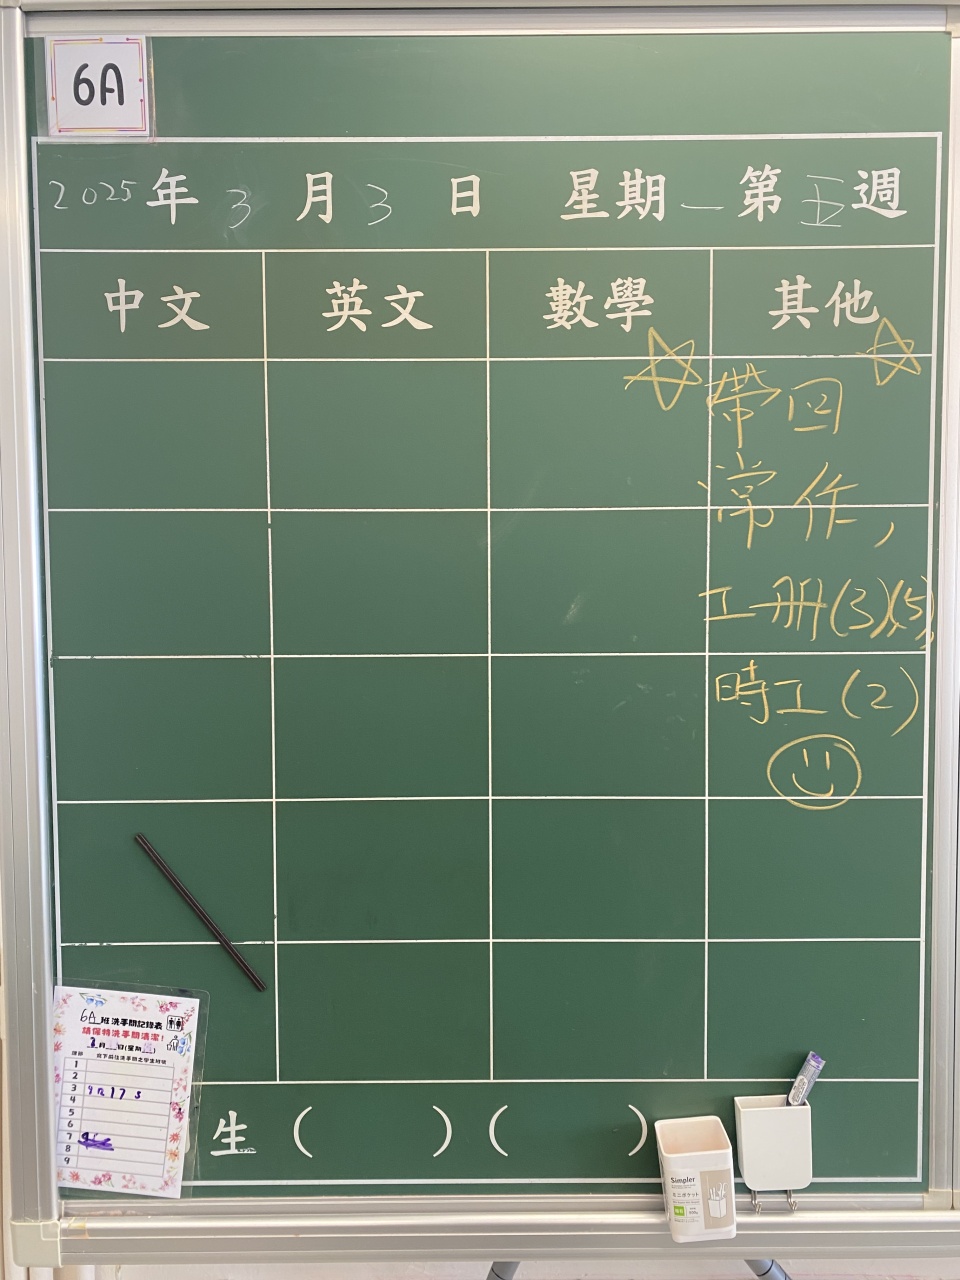 6A
2025年3月3日 星期一第五週
中文 英文 數學 其他
帶回
常作,
工冊(3)(5),
時工(2)
6A班洗手間記錄表
請保持洗手間清潔!
月 日(星期 )
課節
1
2
3
4
5
6
7
8
9
生( )( )
Simpler
ミニポケット